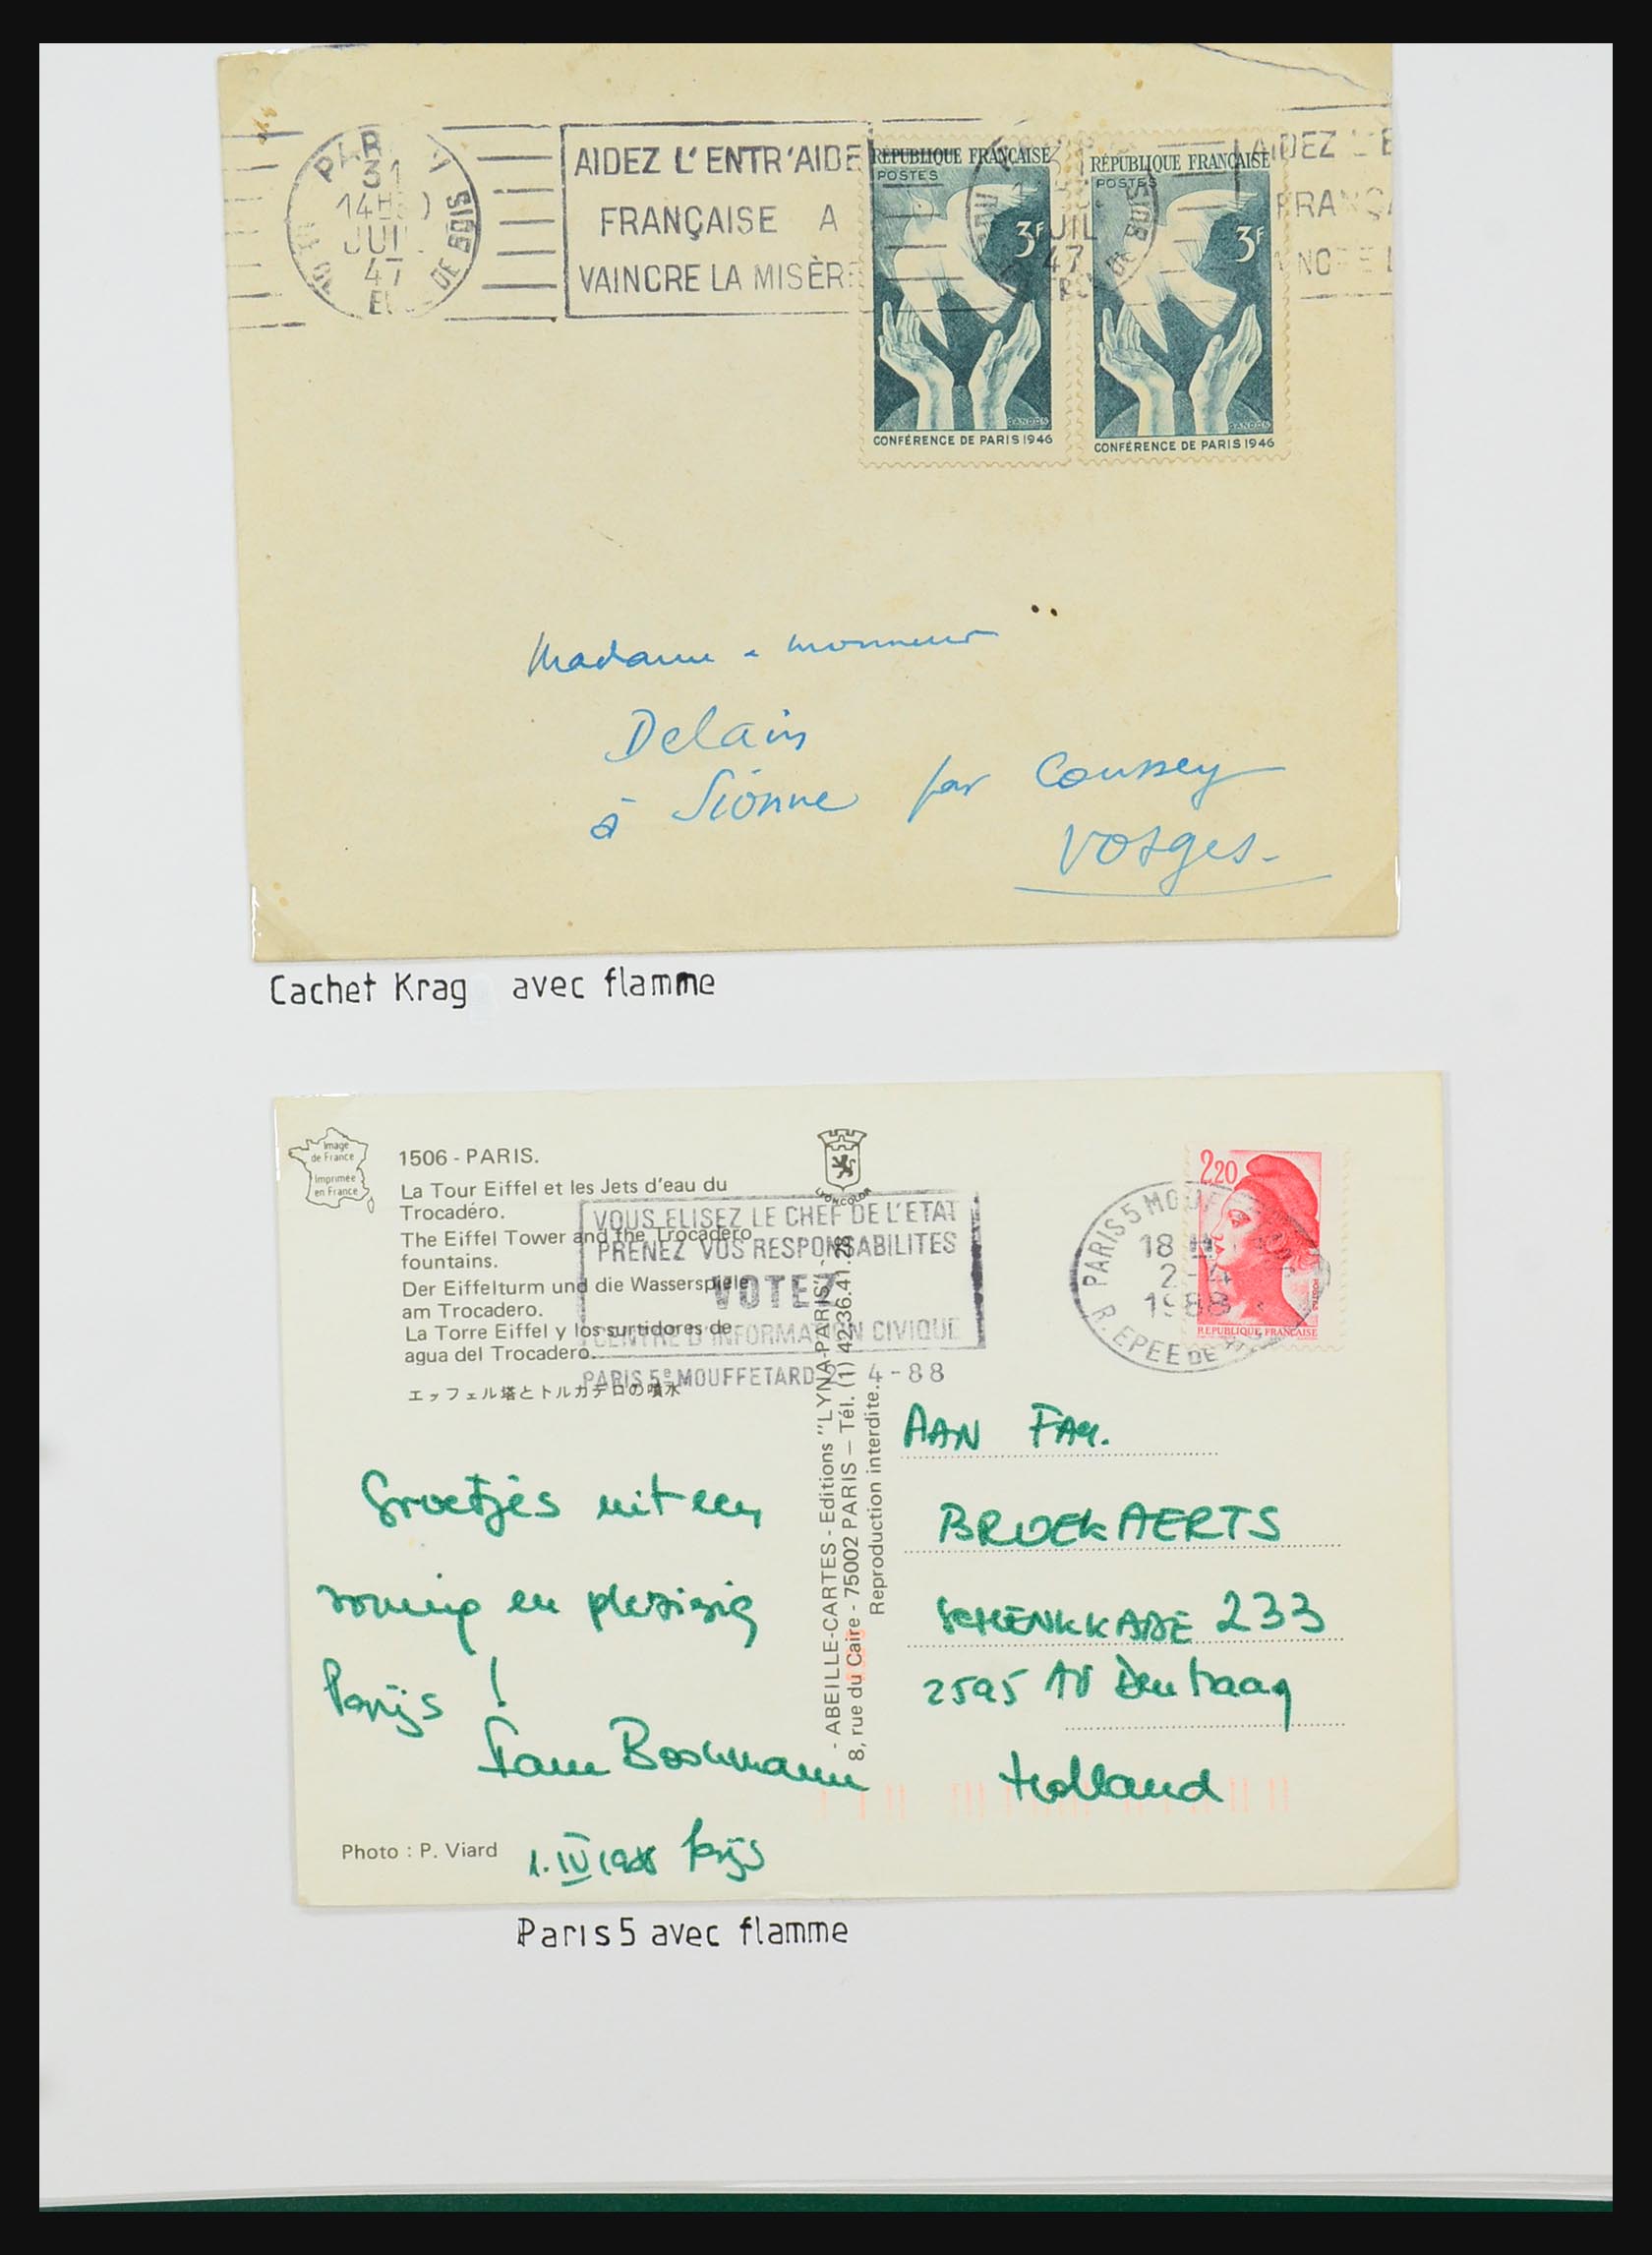 31
JUIL
47
DE BOIS
AIDEZ L'ENTR'AIDE
FRANÇAISE A
VAINCRE LA MISÈR
RÉPUBLIQUE FRANÇAISE
POSTES
3F
GANDON
CONFÉRENCE DE PARIS 1946
RÉPUBLIQUE FRANÇAISE
POSTES
3F
GANDON
CONFÉRENCE DE PARIS 1946
JUIL
47
DE BOIS
AIDEZ L'E
FRANÇA
Madame Monsieur
Delain
à Sionne par Coussey
Vosges-
Cachet Krag avec flamme
Image
de France
Imprimée
en France
1506 - PARIS.
La Tour Eiffel et les Jets d'eau du
Trocadéro.
The Eiffel Tower and the Trocadero
fountains.
Der Eiffelturm und die Wasserspiele
am Trocadero.
La Torre Eiffel y los surtidores de
agua del Trocadero.
エッフェル塔とトルカデロの噴水
LYONCOLOR
VOUS ELISEZ LE CHEF DE L'ETAT
PRENEZ VOS RESPONSABILITES
VOTEZ
CENTRE D'INFORMATION CIVIQUE
PARIS 5e MOUFFETARD 2-4-88
2,20
REPUBLIQUE FRANÇAISE
PARIS 5 MOUF
18 H
2-4
1988
R. EPEE DE
- ABEILLE-CARTES - Editions "LYNA-PARIS"
8, rue du Caire - 75002 PARIS – Tél. (1) 42.36.41.28
Reproduction interdite.
Groetjes uit een
zonnig en plezizig
Parijs !
Fam Boshmann
Photo : P. Viard
1. IV 1988 Parijs
AAN FAM.
BROEKAERTS
SCHENKKADE 233
2595 AV Den Haag
Holland
Paris 5 avec flamme